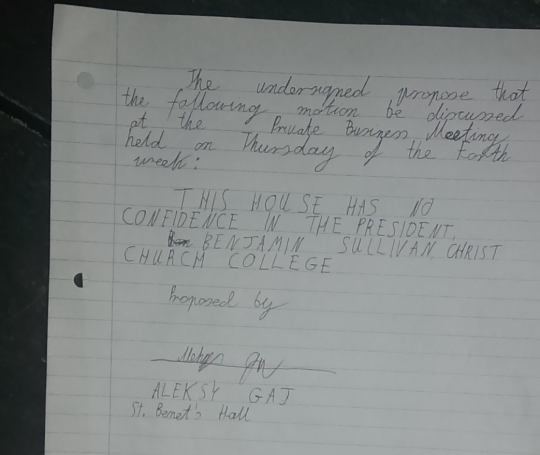 The undersigned propose that
the following motion be discussed
at the Private Business Meeting
held on Thursday of the Forth
week:
THIS HOUSE HAS NO
CONFIDENCE IN THE PRESIDENT,
BENJAMIN SULLIVAN CHRIST
CHURCH COLLEGE
Proposed by
ALEKSY GAJ
St. Benet's Hall